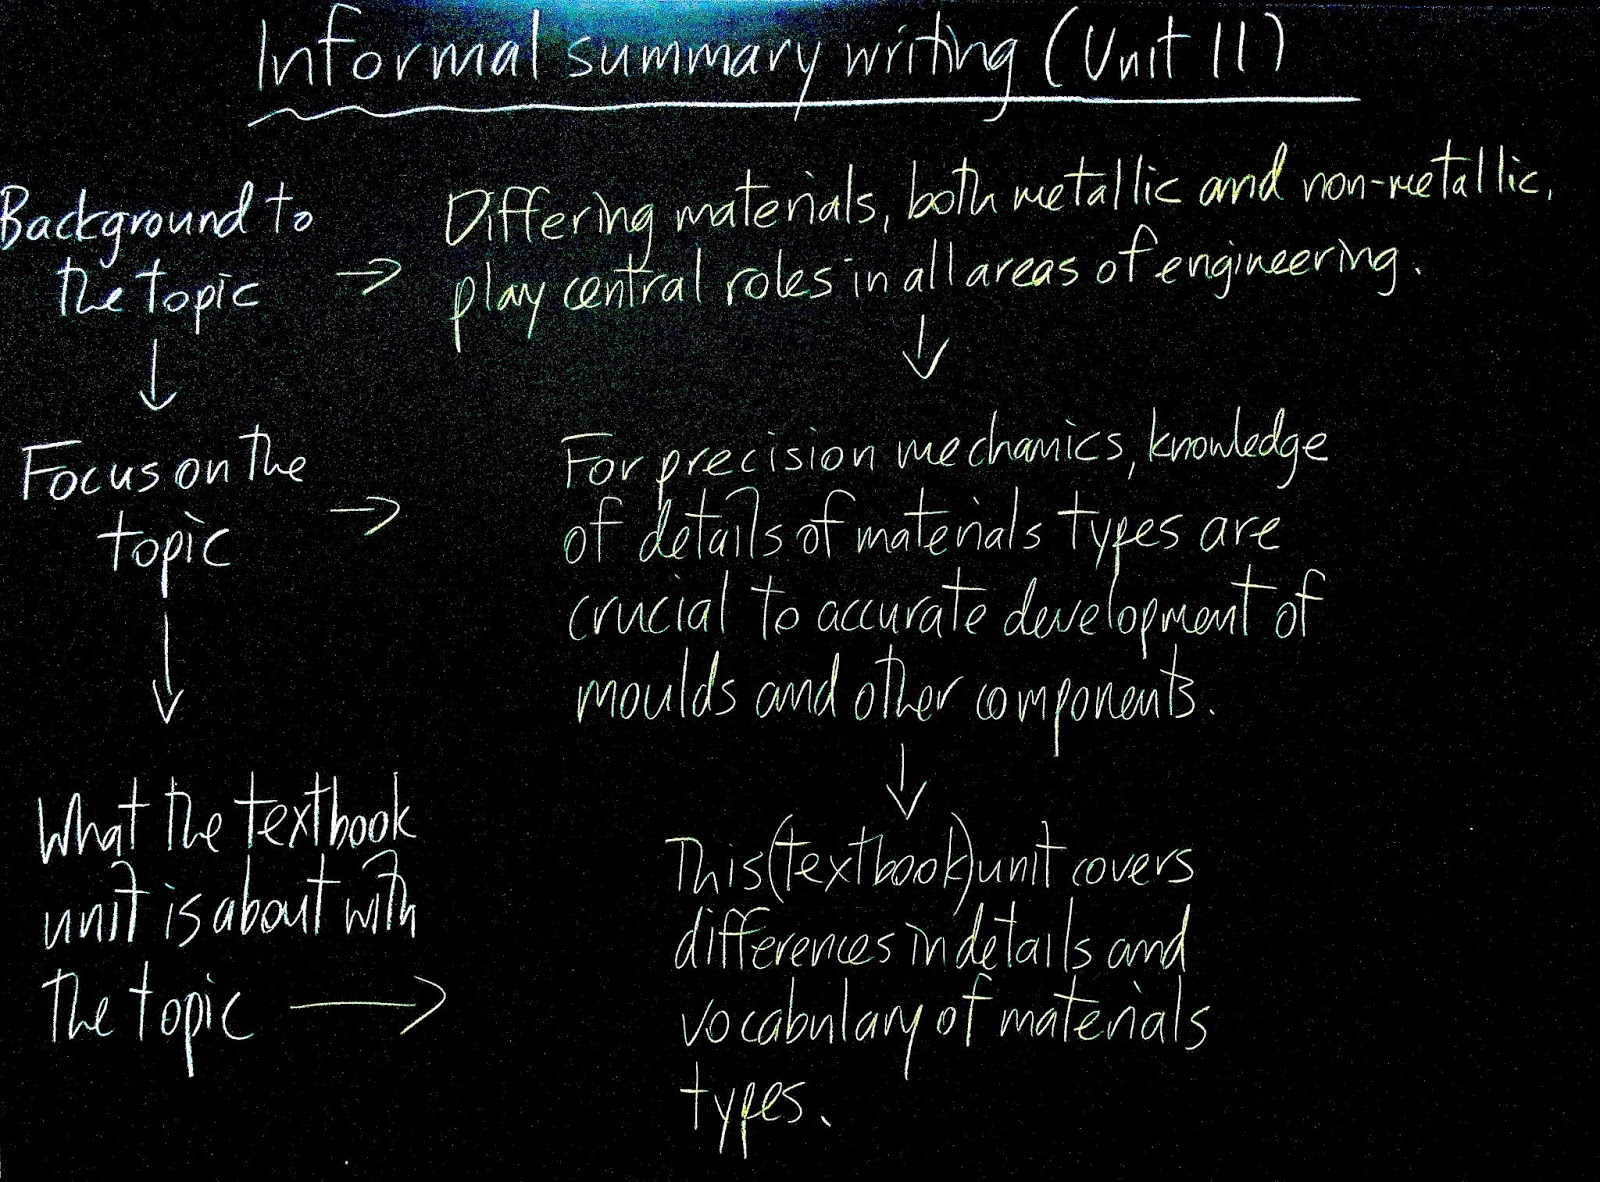 Informal summary writing (Unit 11)
Background to
the topic
Differing materials, both metallic and non-metallic,
play central roles in all areas of engineering.
Focus on the
topic
For precision mechanics, knowledge
of details of materials types are
crucial to accurate development of
moulds and other components.
What the textbook
unit is about with
the topic
This (textbook) unit covers
differences in details and
vocabulary of materials
types.